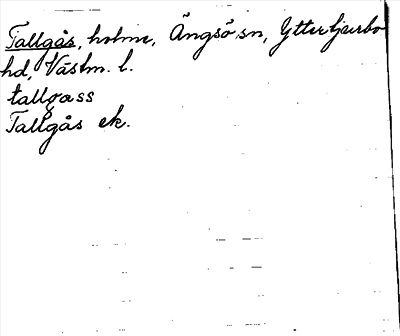 Tallgås, holme, Ängsö sn, Yttertjurbo
hd, Västm. l.
tallgåss
Tallgås ek.